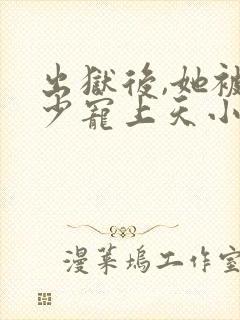 出獄後,她被
少寵上天小
漫菓塢工作室